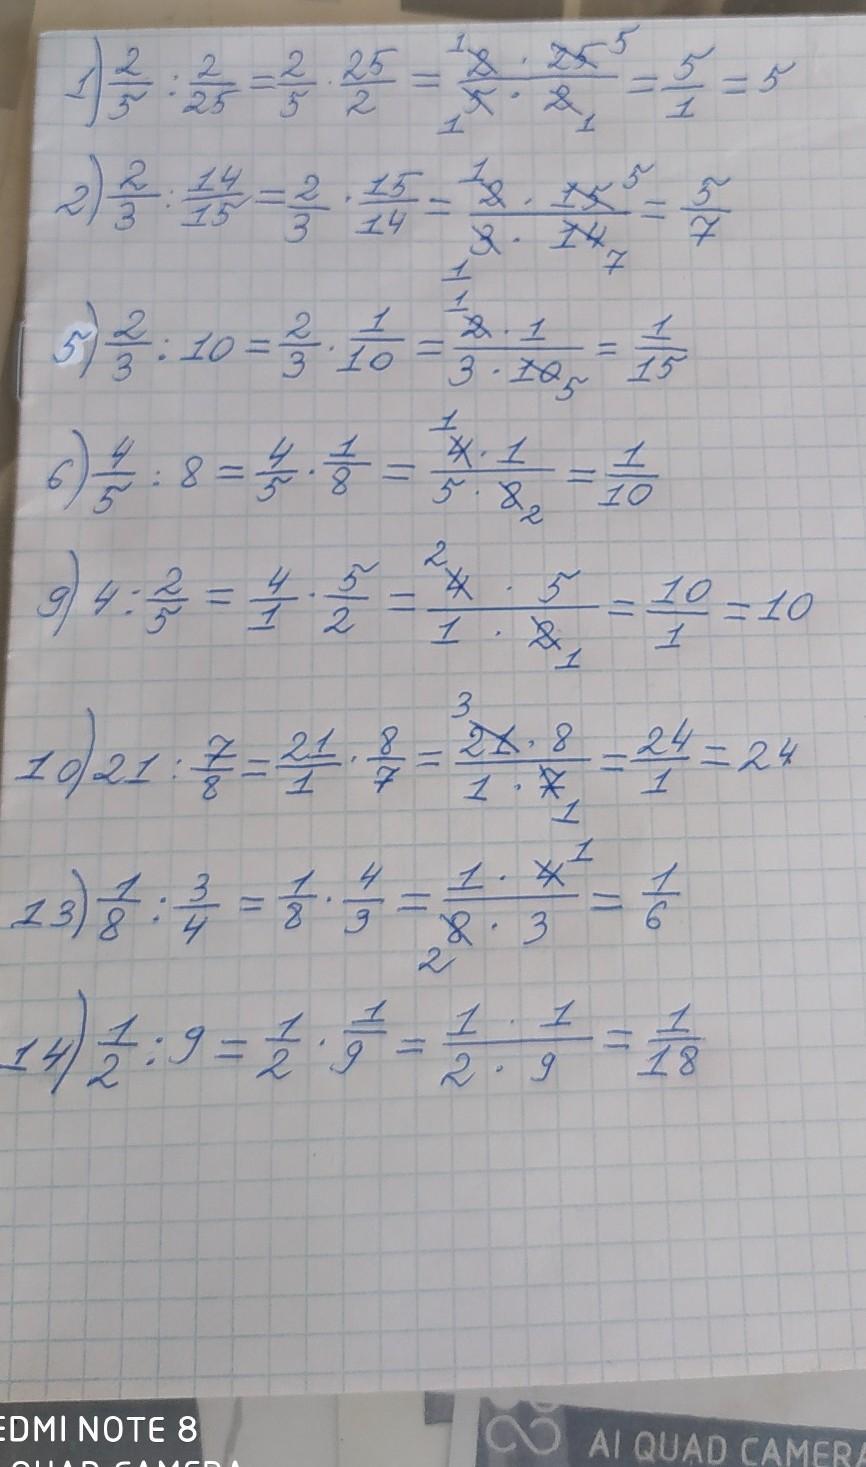 1) 2/5 : 2/25 = 2/5 · 25/2 = 1 2 · 25 5 / 1 5 · 2 1 = 5/1 = 5
2) 2/3 : 14/15 = 2/3 · 15/14 = 1 2 · 15 5 / 3 · 14 7 1 = 5/7
5) 2/3 : 10 = 2/3 · 1/10 = 1 2 · 1 / 3 · 10 5 = 1/15
6) 4/5 : 8 = 4/5 · 1/8 = 1 4 · 1 / 5 · 8 2 = 1/10
9) 4 : 2/5 = 4/1 · 5/2 = 2 4 · 5 / 1 · 2 1 = 10/1 = 10
10) 21 : 7/8 = 21/1 · 8/7 = 3 21 · 8 / 1 · 7 1 = 24/1 = 24
13) 1/8 : 3/4 = 1/8 · 4/3 = 1 · 4 1 / 2 8 · 3 = 1/6
14) 1/2 : 9 = 1/2 · 1/9 = 1 · 1 / 2 · 9 = 1/18
EDMI NOTE 8
AI QUAD CAMERA